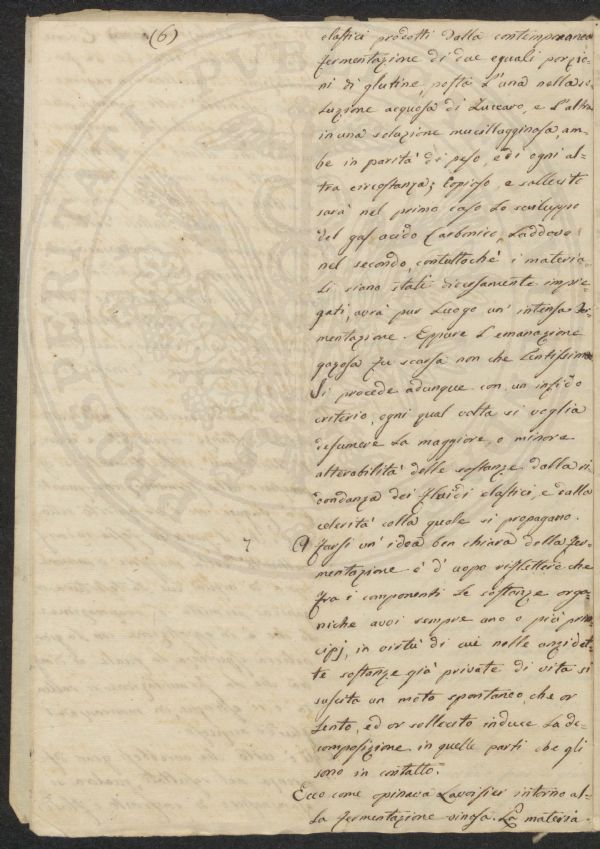 (6)
elastici prodotti dalla contemporanea
fermentazione di due eguali porzio-
ni di glutine, posta l'una nella so-
luzione acquosa di Zuccaro, e l'altra
in una soluzione mucillagginosa, am-
be in parità di peso, e di ogni al-
tra circostanza; Copioso, e sollecito
sarà nel primo caso lo sviluppo
del gas acido Carbonico, Laddove
nel secondo, contuttochè i materia-
li siano stati diversamente impie-
gati, avrà pur luogo un' intensa fer-
mentazione. Eppure l'emanazione
gazosa fu scarsa non che lentissima
Si procede adunque con un infido
criterio, ogni qual volta si voglia
desumere la maggiore, o minore
alterabilità delle sostanze dalla ri-
dondanza dei fluidi elastici, e dalla
celerità colla quale si propagano.
7 A farsi un' idea ben chiara della fer-
mentazione è d' uopo riflettere che
fra i componenti le sostanze orga-
niche avvi sempre uno o più prin-
cipj, in virtù di cui nelle anzidet-
te sostanze già private di vita si
suscita un moto spontaneo, che or
lento, ed or sollecito induce la de-
composizione in quelle parti che gli
sono in contatto.
Ecco come opinava Lavoisier intorno al-
la fermentazione vinosa. La materia